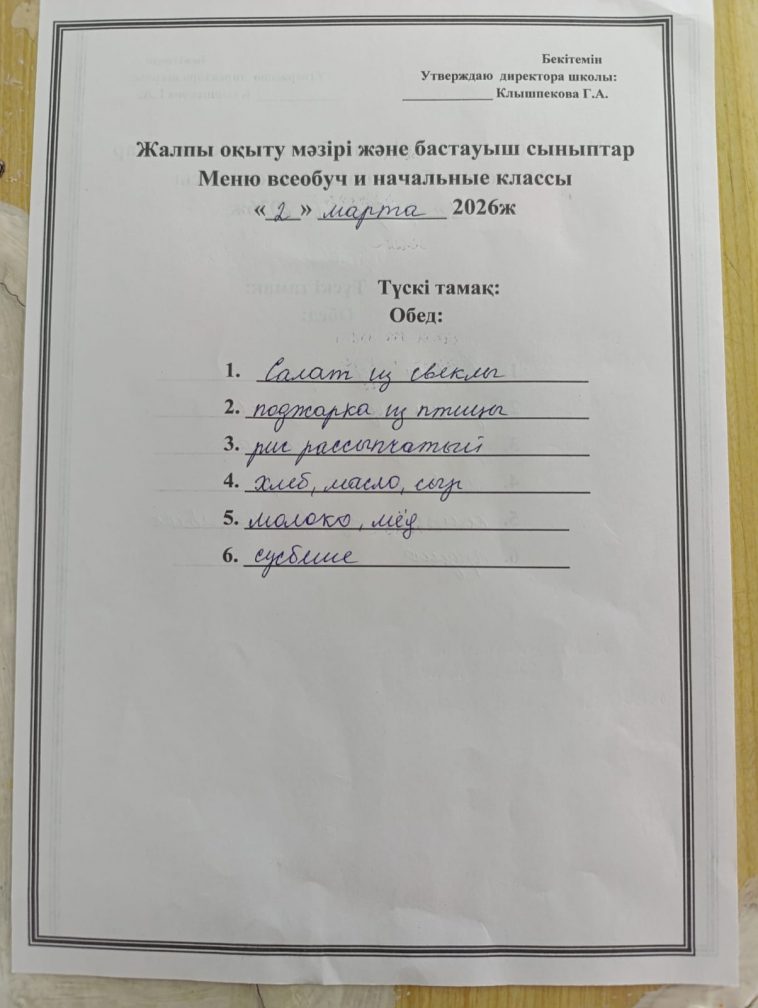 Бекітемін
Утверждаю директора школы:
____________ Клышпекова Г.А.
Жалпы оқыту мәзірі және бастауыш сыныптар
Меню всеобуч и начальные классы
«2» марта 2026ж
Түскі тамақ:
Обед:
1. Салат из свеклы
2. поджарка из птицы
3. рис рассыпчатый
4. хлеб, масло, сыр
5. молоко, мёд
6.